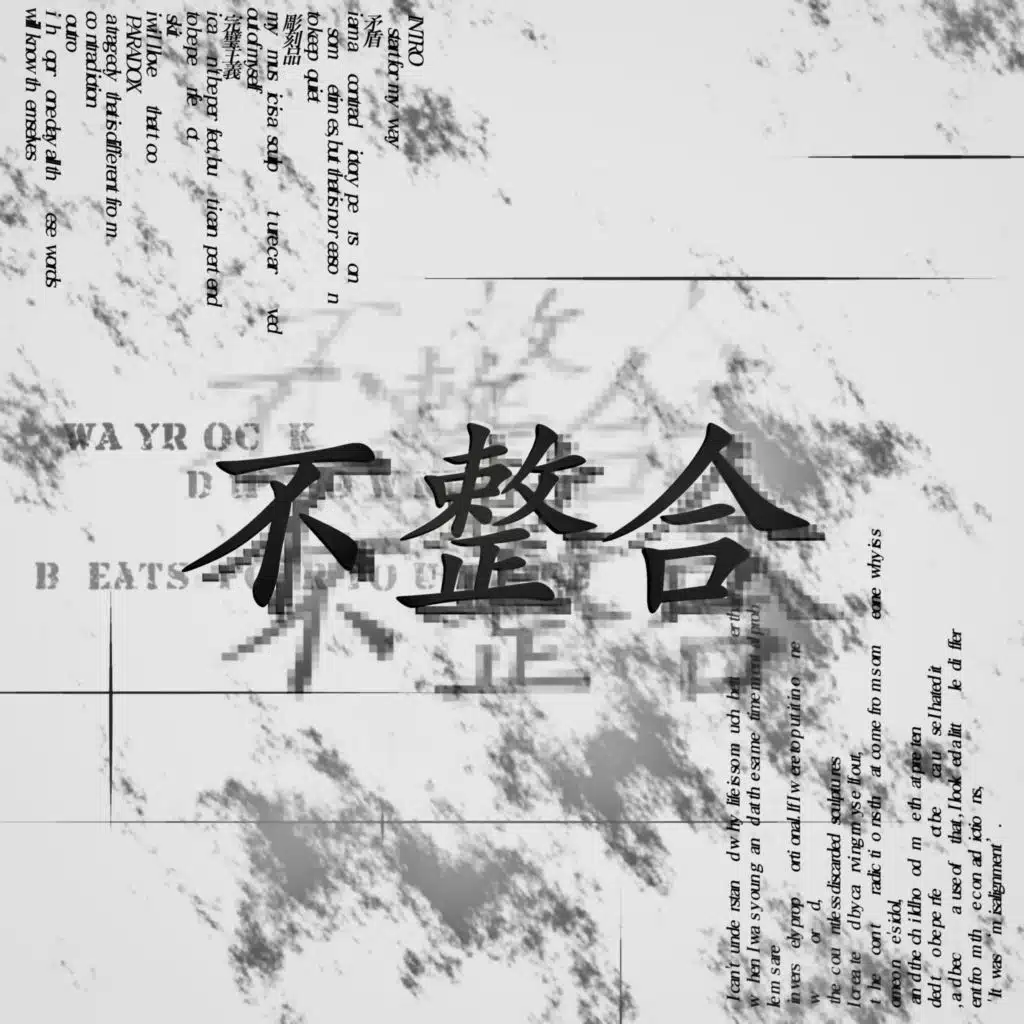 INTRO
start for my way
矛盾
i am a contradictory person
sometimes, but that is more reason
to keep quiet
彫刻品
my music is a sculpture carved
out of myself
完璧主義
i can't be perfect, but i can pretend
to be perfect
skit
i will love that too
PARADOX
a tragedy that is different from
contradiction
outro
one day all these words
will know themselves
WAYROCK
不整合
BEATS FOR YOU
I can't understand why life is so much better
when I was young and at the same time mental prob
lems are
inversely proportional. If I were to put it in one
word,
the countless discarded sculptures
I created by carving myself out,
the contradictions that come from someone why is s
omeone's idol,
and the childhood me that preten
ded to be perfect because I hated it
, and because of that, I looked a little differ
ent from the contradictions,
'It was 'misalignment'.